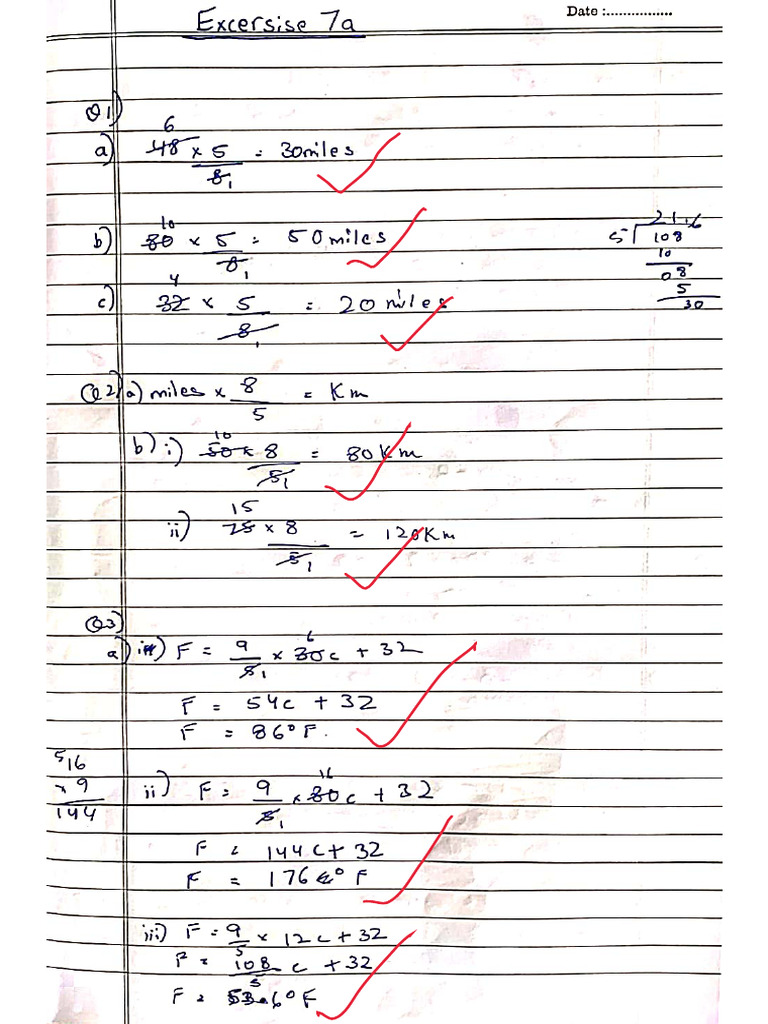 Date :................
Excersise 7a
Q1)
a) 6 48 × 5/8 1 = 30miles
b) 10 80 × 5/8 1 = 50miles
5 | 108 21.6
10
08
5
30
c) 4 32 × 5/8 1 = 20 miles
Q2) a) miles × 8/5 = Km
b) i) 10 50 × 8/5 1 = 80Km
ii) 15 75 × 8/5 1 = 120Km
Q3)
a) i) F = 9/5 1 × 6 30c + 32
F = 54c + 32
F = 86°F.
5 16
×9
144
ii) F = 9/5 1 × 16 80c + 32
F = 144c + 32
F = 176°F
iii) F = 9/5 × 12c + 32
F = 108/5 c + 32
F = 53.6°F